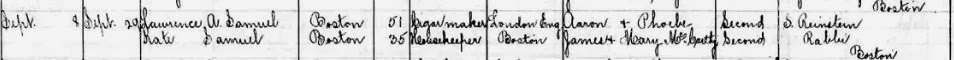 Boston
Sept. 8 Sept. 20 Lawrence A. Samuel Boston 51 Cigar maker London Eng Aaron & Phoebe Second S. Reinstein
Kate Samuel Boston 35 Housekeeper Boston James & Mary McCarthy Second Rabbi
Boston